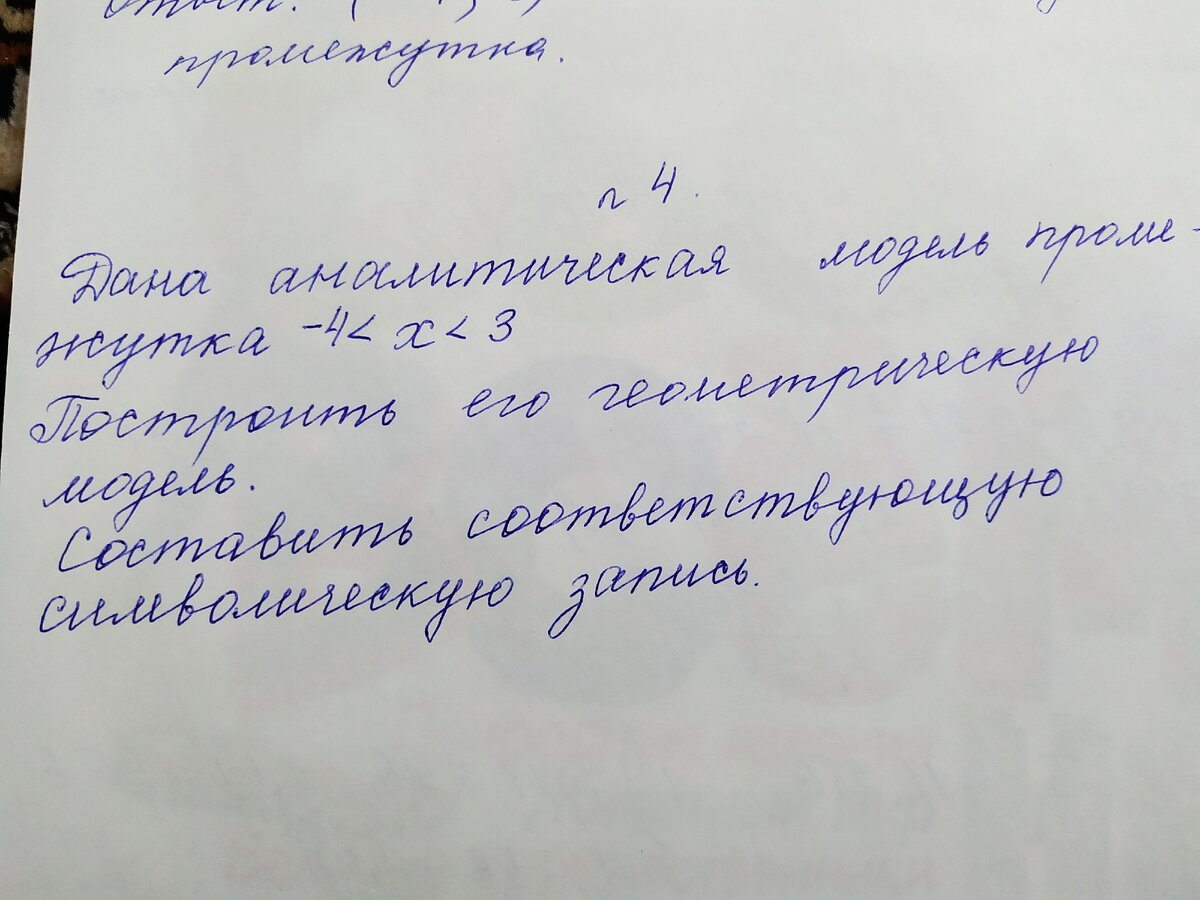 промежутка.
n 4.
Дана аналитическая модель проме-
жутка -4 < x < 3
Построить его геометрическую
модель.
Составить соответствующую
символическую запись.